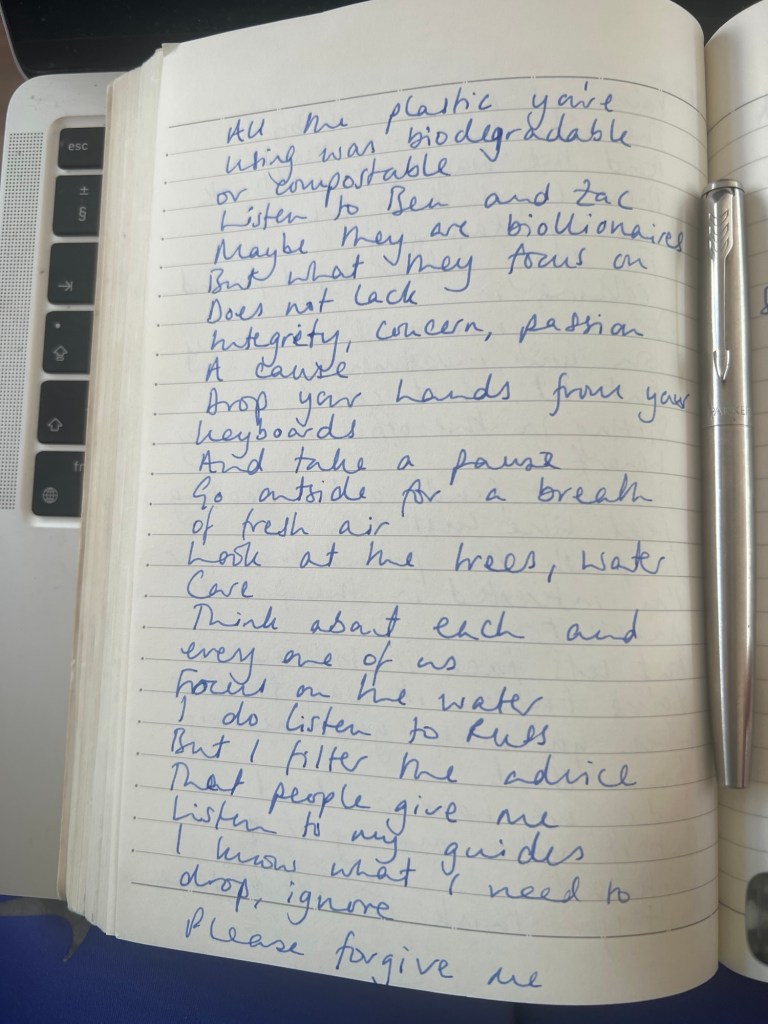 All the plastic you're
using was biodegradable
or compostable
Listen to Ben and Zac
Maybe they are biollionaires
But what they focus on
Does not lack
Integrity, concern, passion
A cause
Drop your hands from your
keyboards
And take a pause
Go outside for a breath
of fresh air
Look at the trees, water
Care
Think about each and
every one of us
Focus on the water
I do listen to Russ
But I filter the advice
That people give me
Listen to my guides
I know what I need to
drop, ignore
Please forgive me
esc
±
§
fn
PARKER